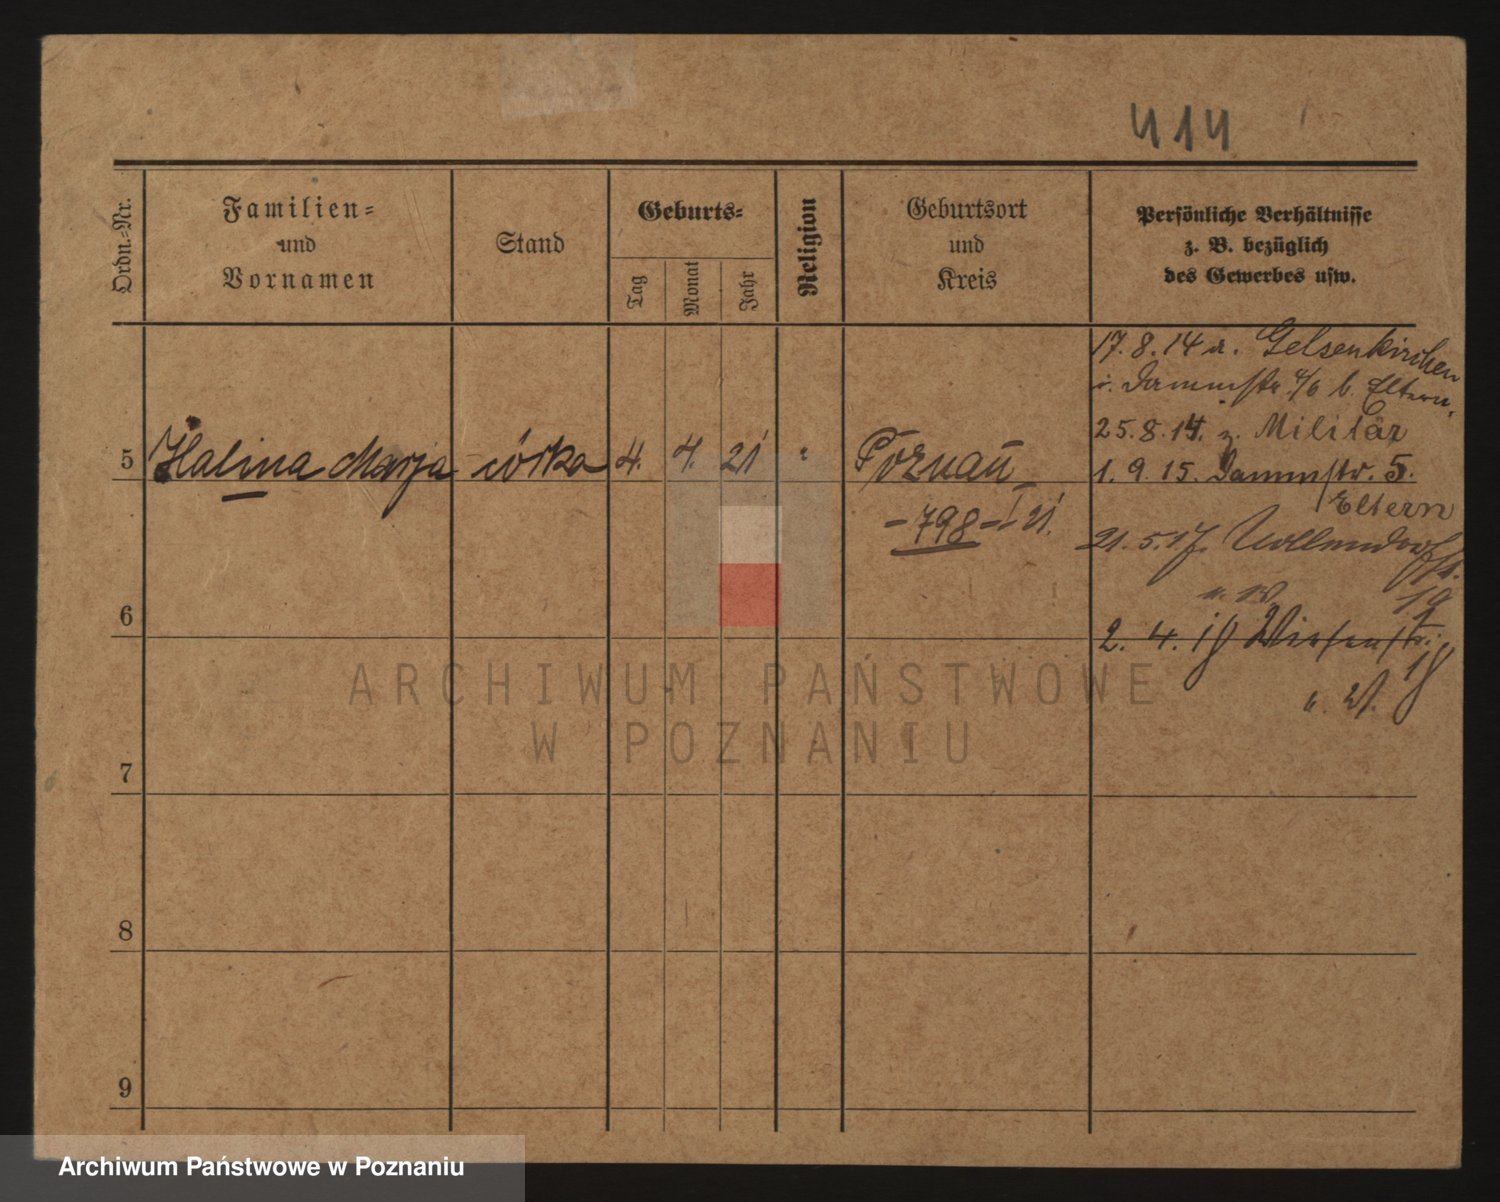 414
Ordn.-Nr.
Familien-
und
Vornamen
Stand
Geburts-
Tag
Monat
Jahr
Religion
Geburtsort
und
Kreis
Persönliche Verhältnisse
z. B. bezüglich
des Gewerbes usw.
17. 8. 14 a. Gelsenkirchen
b. Eltern.
25. 8. 14. z. Militär
1. 9. 15. Dammstr. 5.
Eltern
5 Halina Marja córka 4. 4. 21 " Poznań
– 798 – I 21.
21. 5. 17.
19
6
2. 4. 18 Wiesenstr.
18
7
8
9
ARCHIWUM PAŃSTWOWE
W POZNANIU
Archiwum Państwowe w Poznaniu